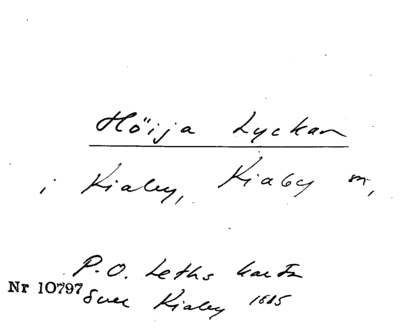 Höija Lyckan
i Kiaby, Kiaby m,
P.O. Leths karta
Nr 10797
över Kiaby 1685